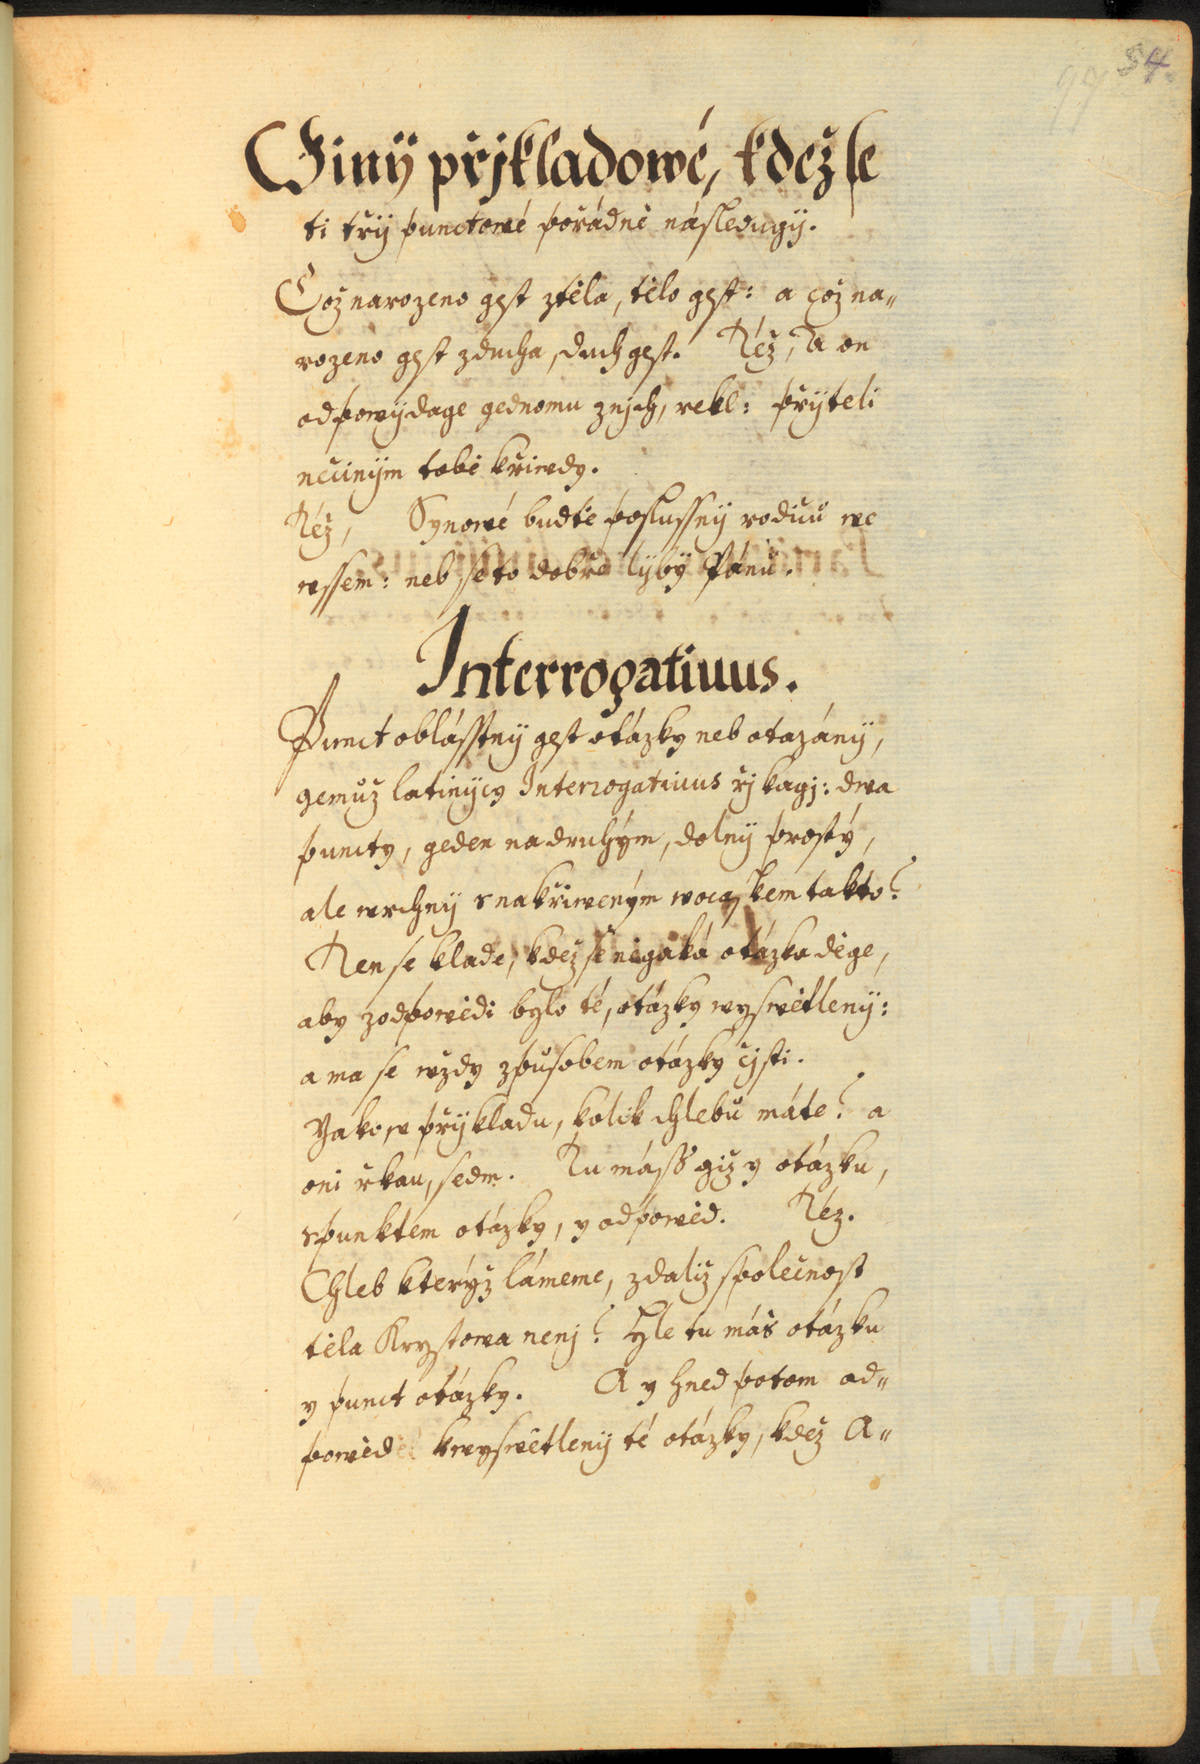 84.
Ginij přjkladowé, kdež se
ti třij punctowé pořádně následugij.
Což narozeno gest z těla, tělo gest: a což na„
rozeno gest z ducha, duch gest. Též, A on
odpowijdage gednomu z njch, rekl: přijteli
nečinijm tobě křiwdy.
Též, Synowé buďte poslussnij rodičů we
wssem: neb se to dobře lijbij Pánu.
Interrogatiuus.
Punct obláſſtnij gest otázky neb otazánij,
gemuž latinijcy Interrogatiuus řjkagj: dwa
puncty, geden na druhým, dolnij prostý,
ale wrchnij s nakřiweným wocáſkem takto?
Ten se klade, kdež se negaká otázka děge,
aby z odpowědi bylo té, otázky wyswětlenij:
a ma se wždy způsobem otázky čjsti.
Yako w přijkladu, kolik chlebů máte? a
oni řkau, sedm. Tu máſſ giž y otázku,
s punktem otázky, y odpowěd. Též.
Chleb kterýž lámeme, zdaliž společnost
těla Krystowa nenj? Hle tu máš otázku
y punct otázky. A y hned potom od„
powěd k wyswětlenij té otázky, kdež A„
MZK
MZK